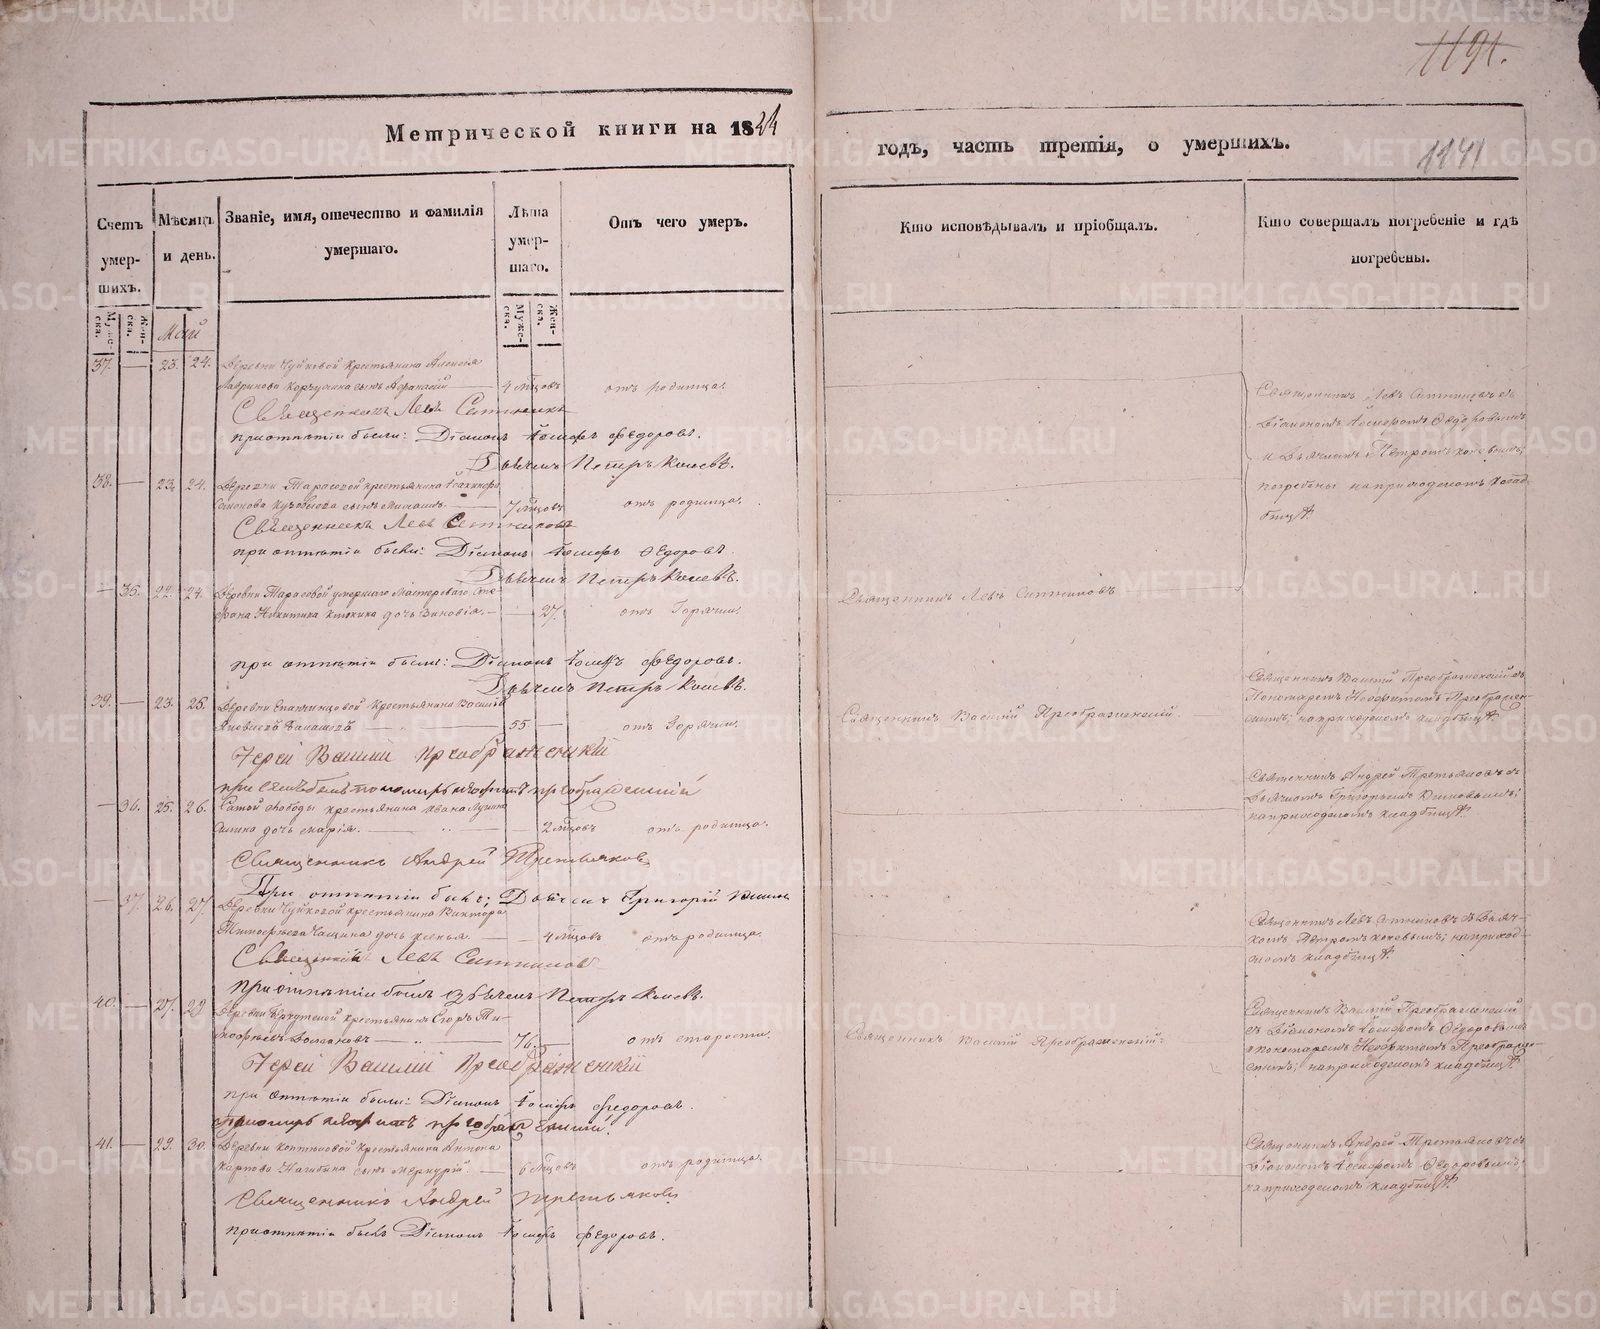 1191.
Метрической книги на 1844
годъ, часть третія, о умершихъ.
1141
Счетъ умер-шихъ.
Мѣсяцъ и день.
Званіе, имя, отечество и фамилія умершаго.
Лѣта умер-шаго.
Отъ чего умеръ.
Кто исповѣдывалъ и пріобщалъ.
Кто совершалъ погребеніе и гдѣ погребены.
Муже-ска.
Жен-ска.
Муже-ска.
Жен-ска.
Май
37. — 23. 24. Деревни Чуйковой крестьянина Алексѣя
сынъ Афанасій — 4 мѣсцовъ отъ родимца.
Священникъ Левъ Ситниковъ
при отпѣтіи были: Діаконъ Іосифъ Федоровъ.
Дьячекъ Петръ Коневъ.
Священникъ Левъ Ситниковъ съ
Діакономъ Іосифомъ Федоровымъ
и Дьячкомъ Петромъ Коневымъ;
погребены на приходскомъ клад-
бищѣ.
38. — 23. 24. Деревни Тарасовой крестьянина
сынъ — 7 мѣсцовъ отъ родимца.
Священникъ Левъ Ситниковъ
при отпѣтіи были: Діаконъ Іосифъ Федоровъ.
Дьячекъ Петръ Коневъ.
— 35. 22. 24. Деревни Тарасовой умершаго Мастероваго Сте-
фана Никитина дочь Зиновія. — 27. отъ Горячки.
Священникъ Левъ Ситниковъ
при отпѣтіи были: Діаконъ Іосифъ Федоровъ.
Дьячекъ Петръ Коневъ.
39. — 23. 25. Деревни крестьянина Василій
55 — отъ Горячки.
Священникъ Василій Преображенскій.
Священникъ Василій Преображенскій съ
Пономаремъ Неофитомъ Преображен-
скимъ; на приходскомъ кладбищѣ.
Іерей Василій Преображенскій
при семъ былъ пономарь Неофитъ Преображенскій
— 36. 25. 26. Самой слободы крестьянина Ивана
дочь Марія. — 2 мѣсцовъ отъ родимца.
Священникъ Андрей Третьяковъ съ
Дьячкомъ Григорьемъ
на приходскомъ кладбищѣ.
Священникъ Андрей Третьяковъ
При отпѣтіи былъ; Дьячекъ Григорій
— 37. 26. 27. Деревни Чуйковой крестьянина Виктора
Тимофѣева Чащина дочь Ксенья — 4 мѣсцовъ отъ родимца.
Священникъ Левъ Ситниковъ съ Дьяч-
комъ Петромъ Коневымъ; на приход-
скомъ кладбищѣ.
Священникъ Левъ Ситниковъ
при отпѣтіи былъ Дьячекъ Петръ Коневъ.
40. — 27. 29. Деревни крестьянинъ Егоръ Ти-
мофѣевъ — 76. — отъ старости.
Священникъ Василій Преображенскій.
Священникъ Василій Преображенскій
съ Діакономъ Іосифомъ Федоровымъ
и пономаремъ Неофитомъ Преображен-
скимъ; на приходскомъ кладбищѣ.
Іерей Василій Преображенскій
при отпѣтіи были: Діаконъ Іосифъ Федоровъ.
Пономарь Неофитъ Преображенскій.
41. — 29. 30. Деревни крестьянина Антона
Карпова сынъ Меркурій. — 6 мѣсцовъ отъ родимца.
Священникъ Андрей Третьяковъ съ
Діакономъ Іосифомъ Федоровымъ;
на приходскомъ кладбищѣ.
Священникъ Андрей Третьяковъ
при отпѣтіи былъ Діаконъ Іосифъ Федоровъ.
METRIKI.GASO-URAL.RU